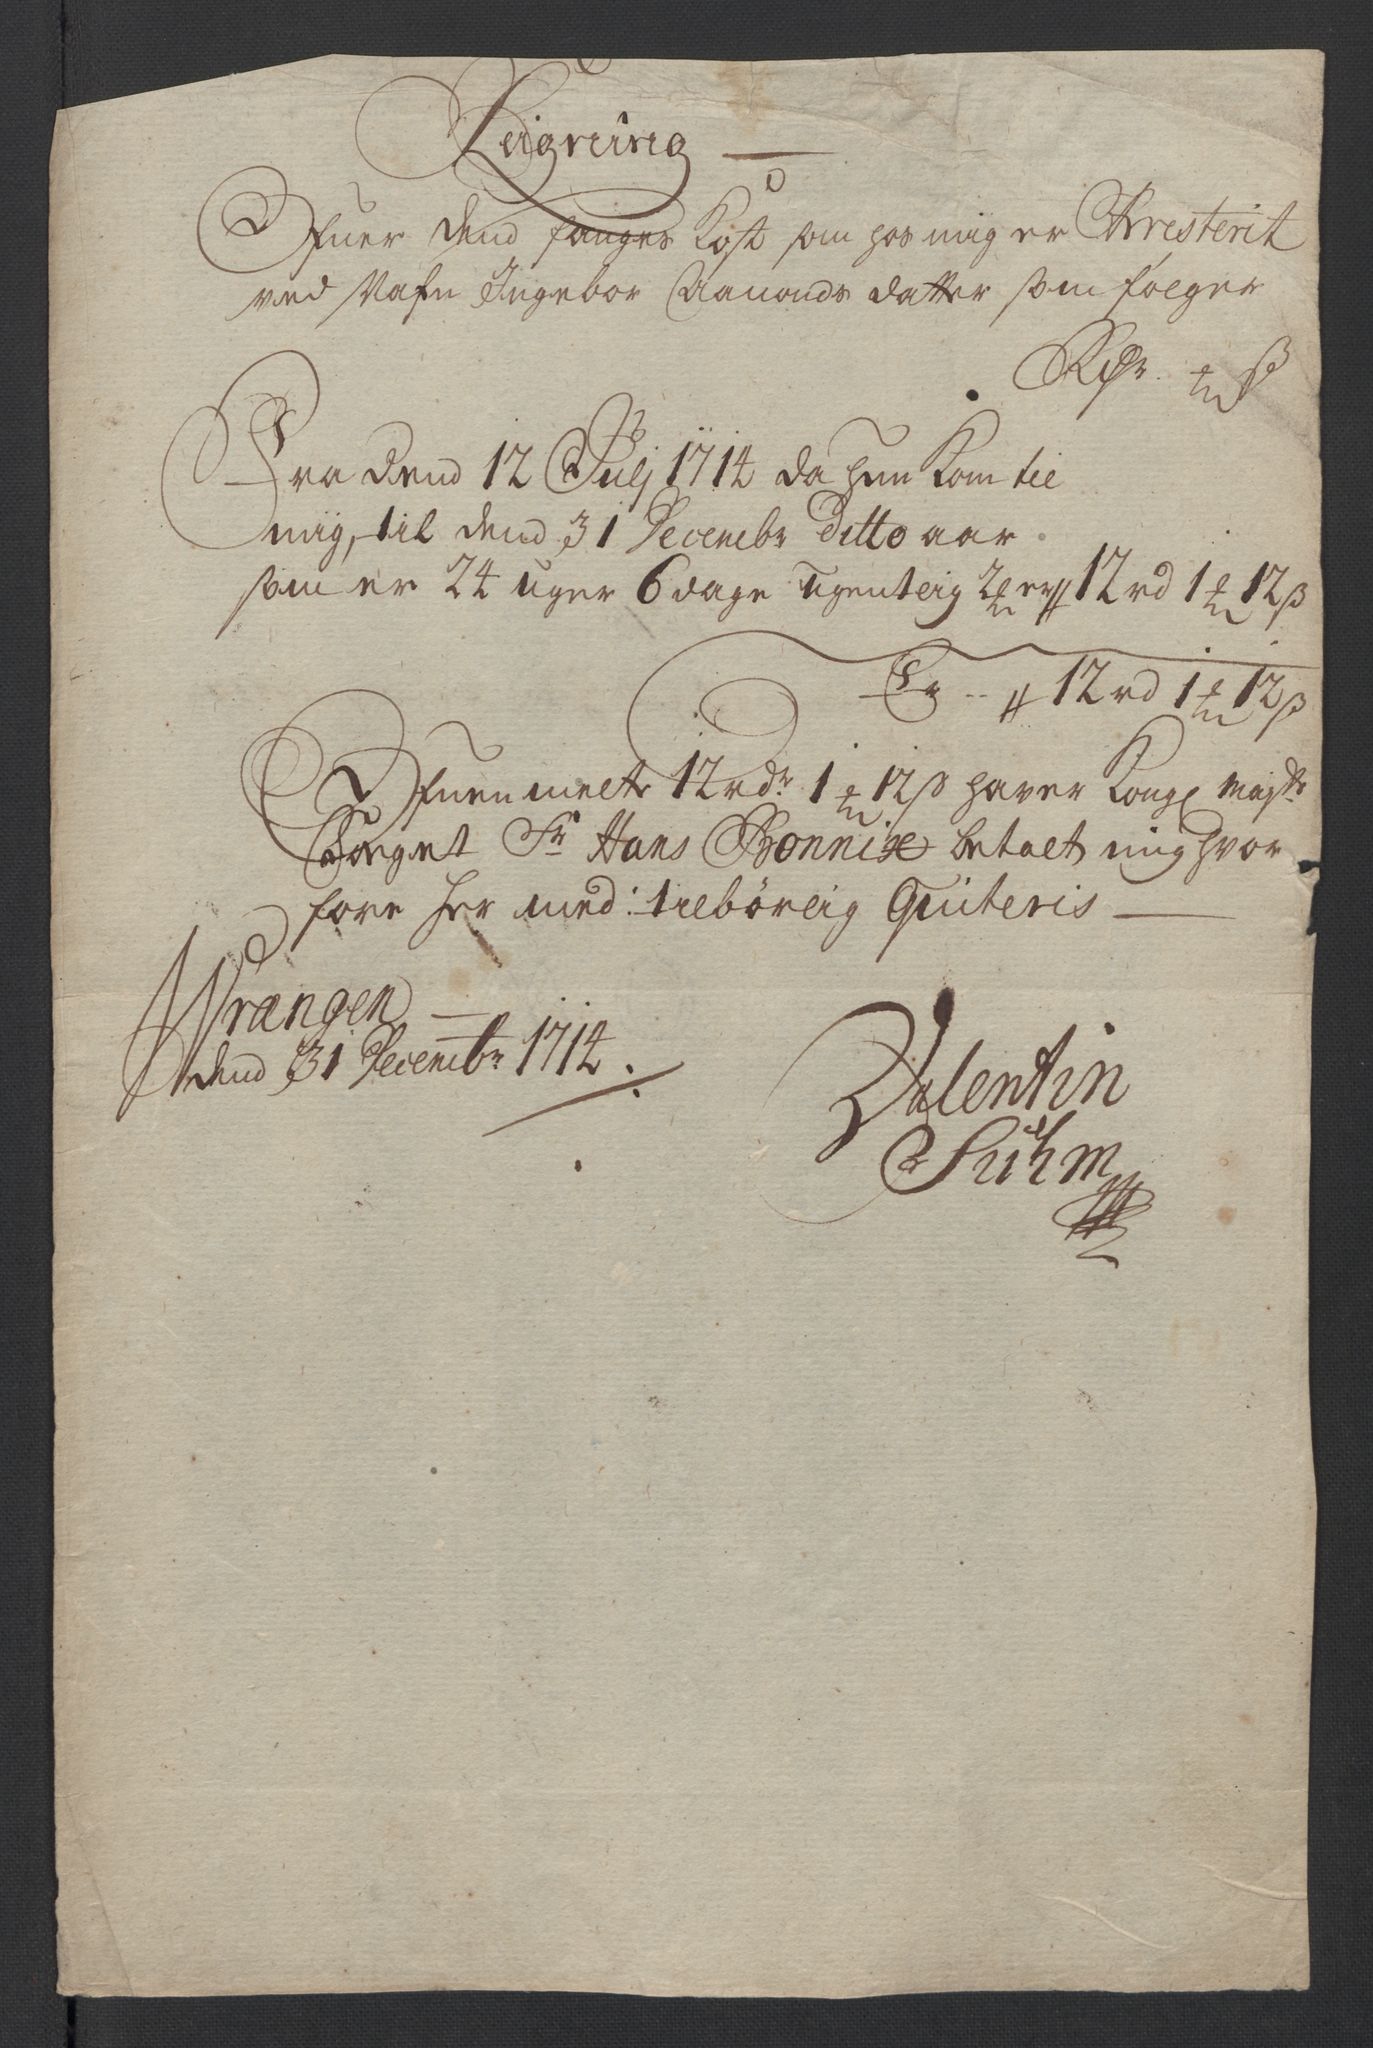 Reigning
Ofuer dend fanges Kost som hos mig er Arresterit
ved Nafn Ingebor Aamonds datter som følger
Rdr. ß
Fra Dend 12 Julj 1714 da hun Kom til
mig, til dend 31 Decembr ditto aar
som er 24 uger 6 dage ugentlig 2 er 12 rd 1 12 ß
Er -- 12 rd 1 12 ß
Ofuenmelte 12 rdr 1 12 ß haver Kongl Mayts
Foeget Sr Hans Bonnix betalt mig hvor
fore her med tilbørlig Quiteris
Wrængen
dend 31 Decembr 1714
Valentin
Suhm